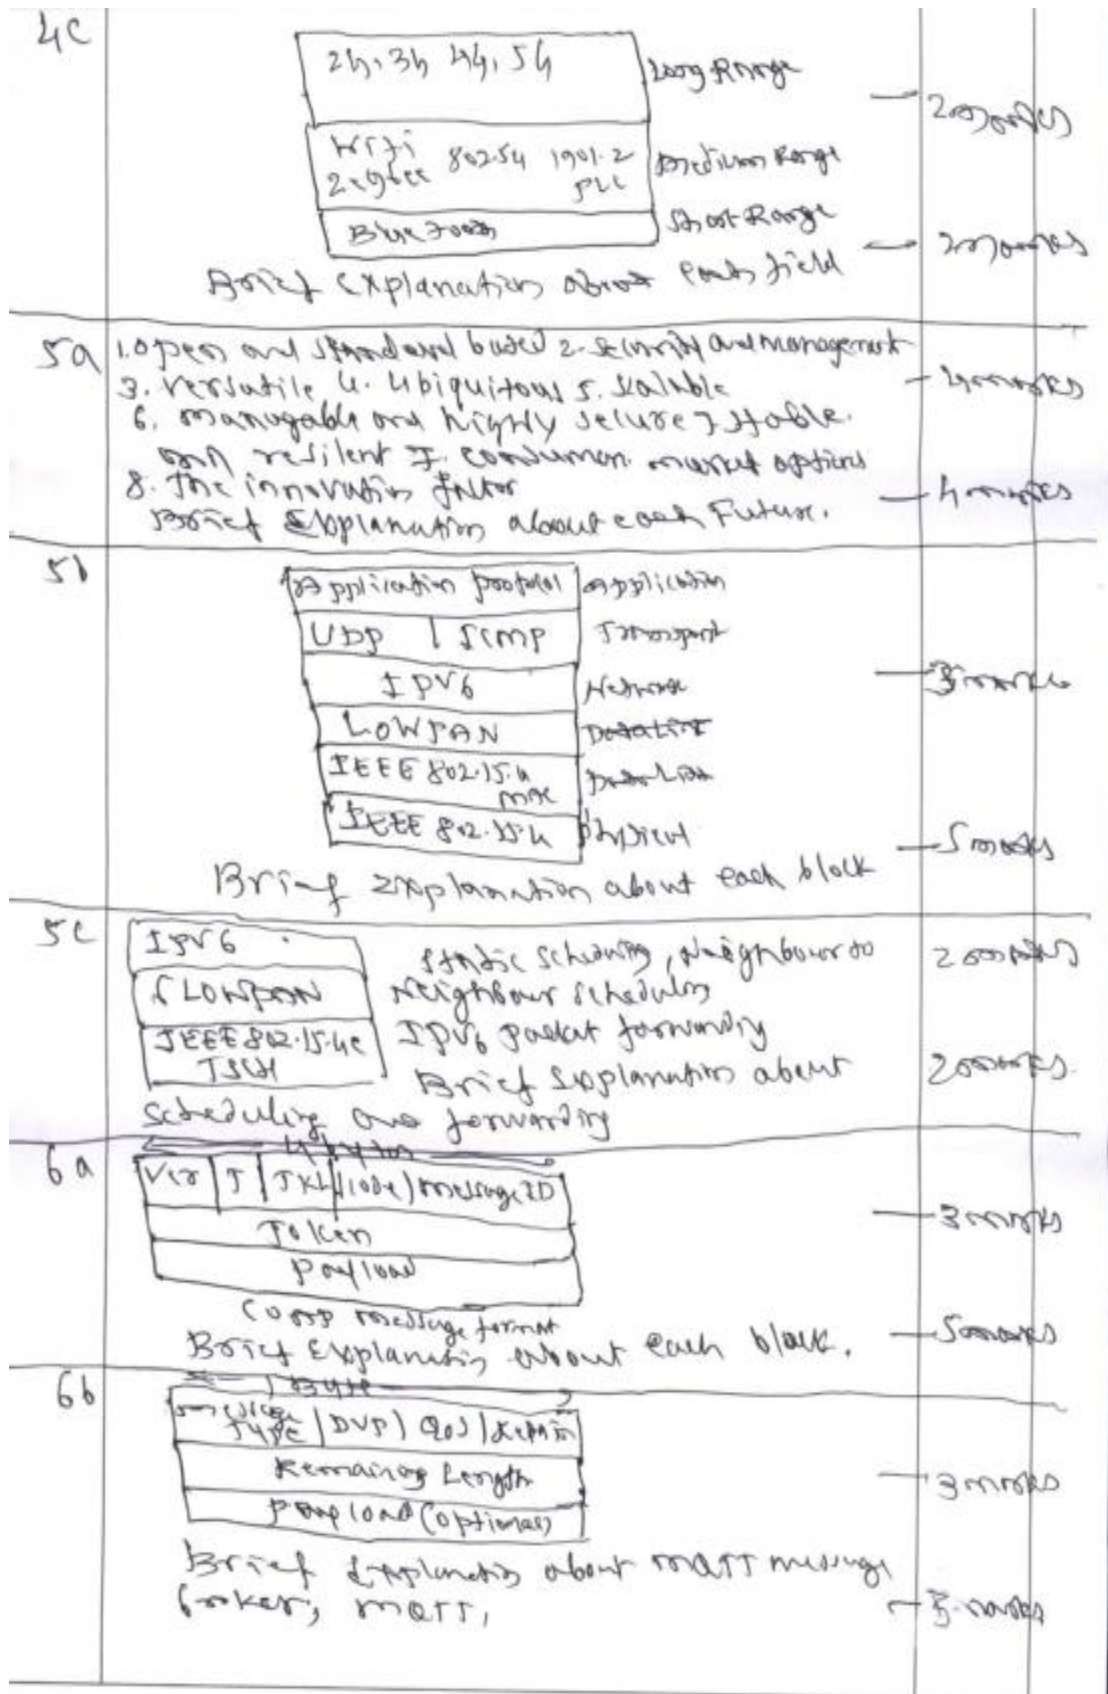 4c
2G, 3G 4G, 5G Long Range
2 marks
Wifi 802.54 1901.2 Medium Range
Zigbee PLC
Bluetooth Short Range
2 marks
Brief Explanation about each field
5a 1. open and standard based 2. Security and management
3. Versatile 4. Ubiquitous 5. Scalable 4 marks
6. managable and highly secure 7 Stable.
and resilent 7. consumer market options
8. The innovation factor 4 marks
Brief Explanation about each Future.
5b
Application protocol Application
UDP | ICMP Transport
IPV6 Network 3 marks
LOWPAN Datalink
IEEE 802.15.4 Data Link
MAC
IEEE 802.15.4 Physical
5 marks
Brief Explanation about each block
5c IPV6 Static Scheduling, Neighbour to 2 marks
6 LOWPAN Neighbour Scheduling
IEEE 802.15.4e IPV6 packet forwarding
TSCH Brief Explanation about 2 marks
Scheduling and forwarding
6a 4 bytes
Ver | T | TKL | Code | message ID
Token 3 marks
Payload
message format
Brief Explanation about each block. 5 marks
6b 1 Byte
message
TYPE | DUP | QoS |
Remaining Length 3 marks
Payload (optional)
Brief Explanation about MQTT message
broker, MQTT, marks